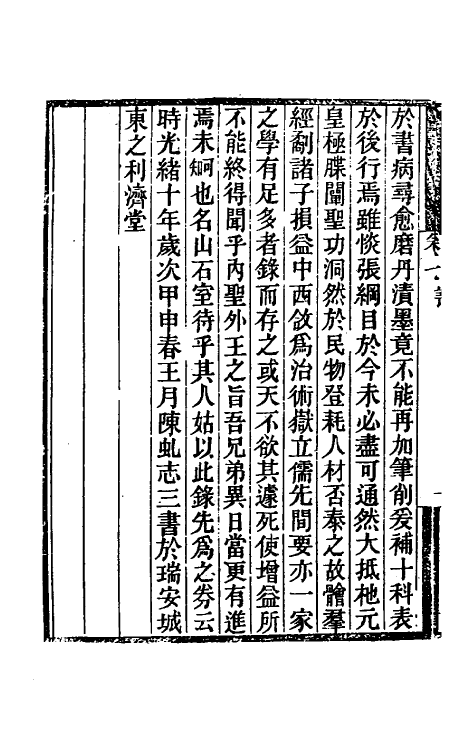 於書病尋愈磨丹漬墨竟不能再加筆削爰補十科表
於後行焉雖惔張綱目於今未必盡可通然大抵杝元
皇極牒闡聖功洞然於民物登耗人材否泰之故髗羣
經剬諸子損益中西敆爲治術嶽立儒先間要亦一家
之學有足多者錄而存之或天不欲其遽死使增益所
不能終得聞乎內聖外王之旨吾兄弟異日當更有進
焉未知何也名山石室待乎其人姑以此錄先爲之券云
時光緒十年歲次甲申春王月陳虬志三書於瑞安城
東之利濟堂